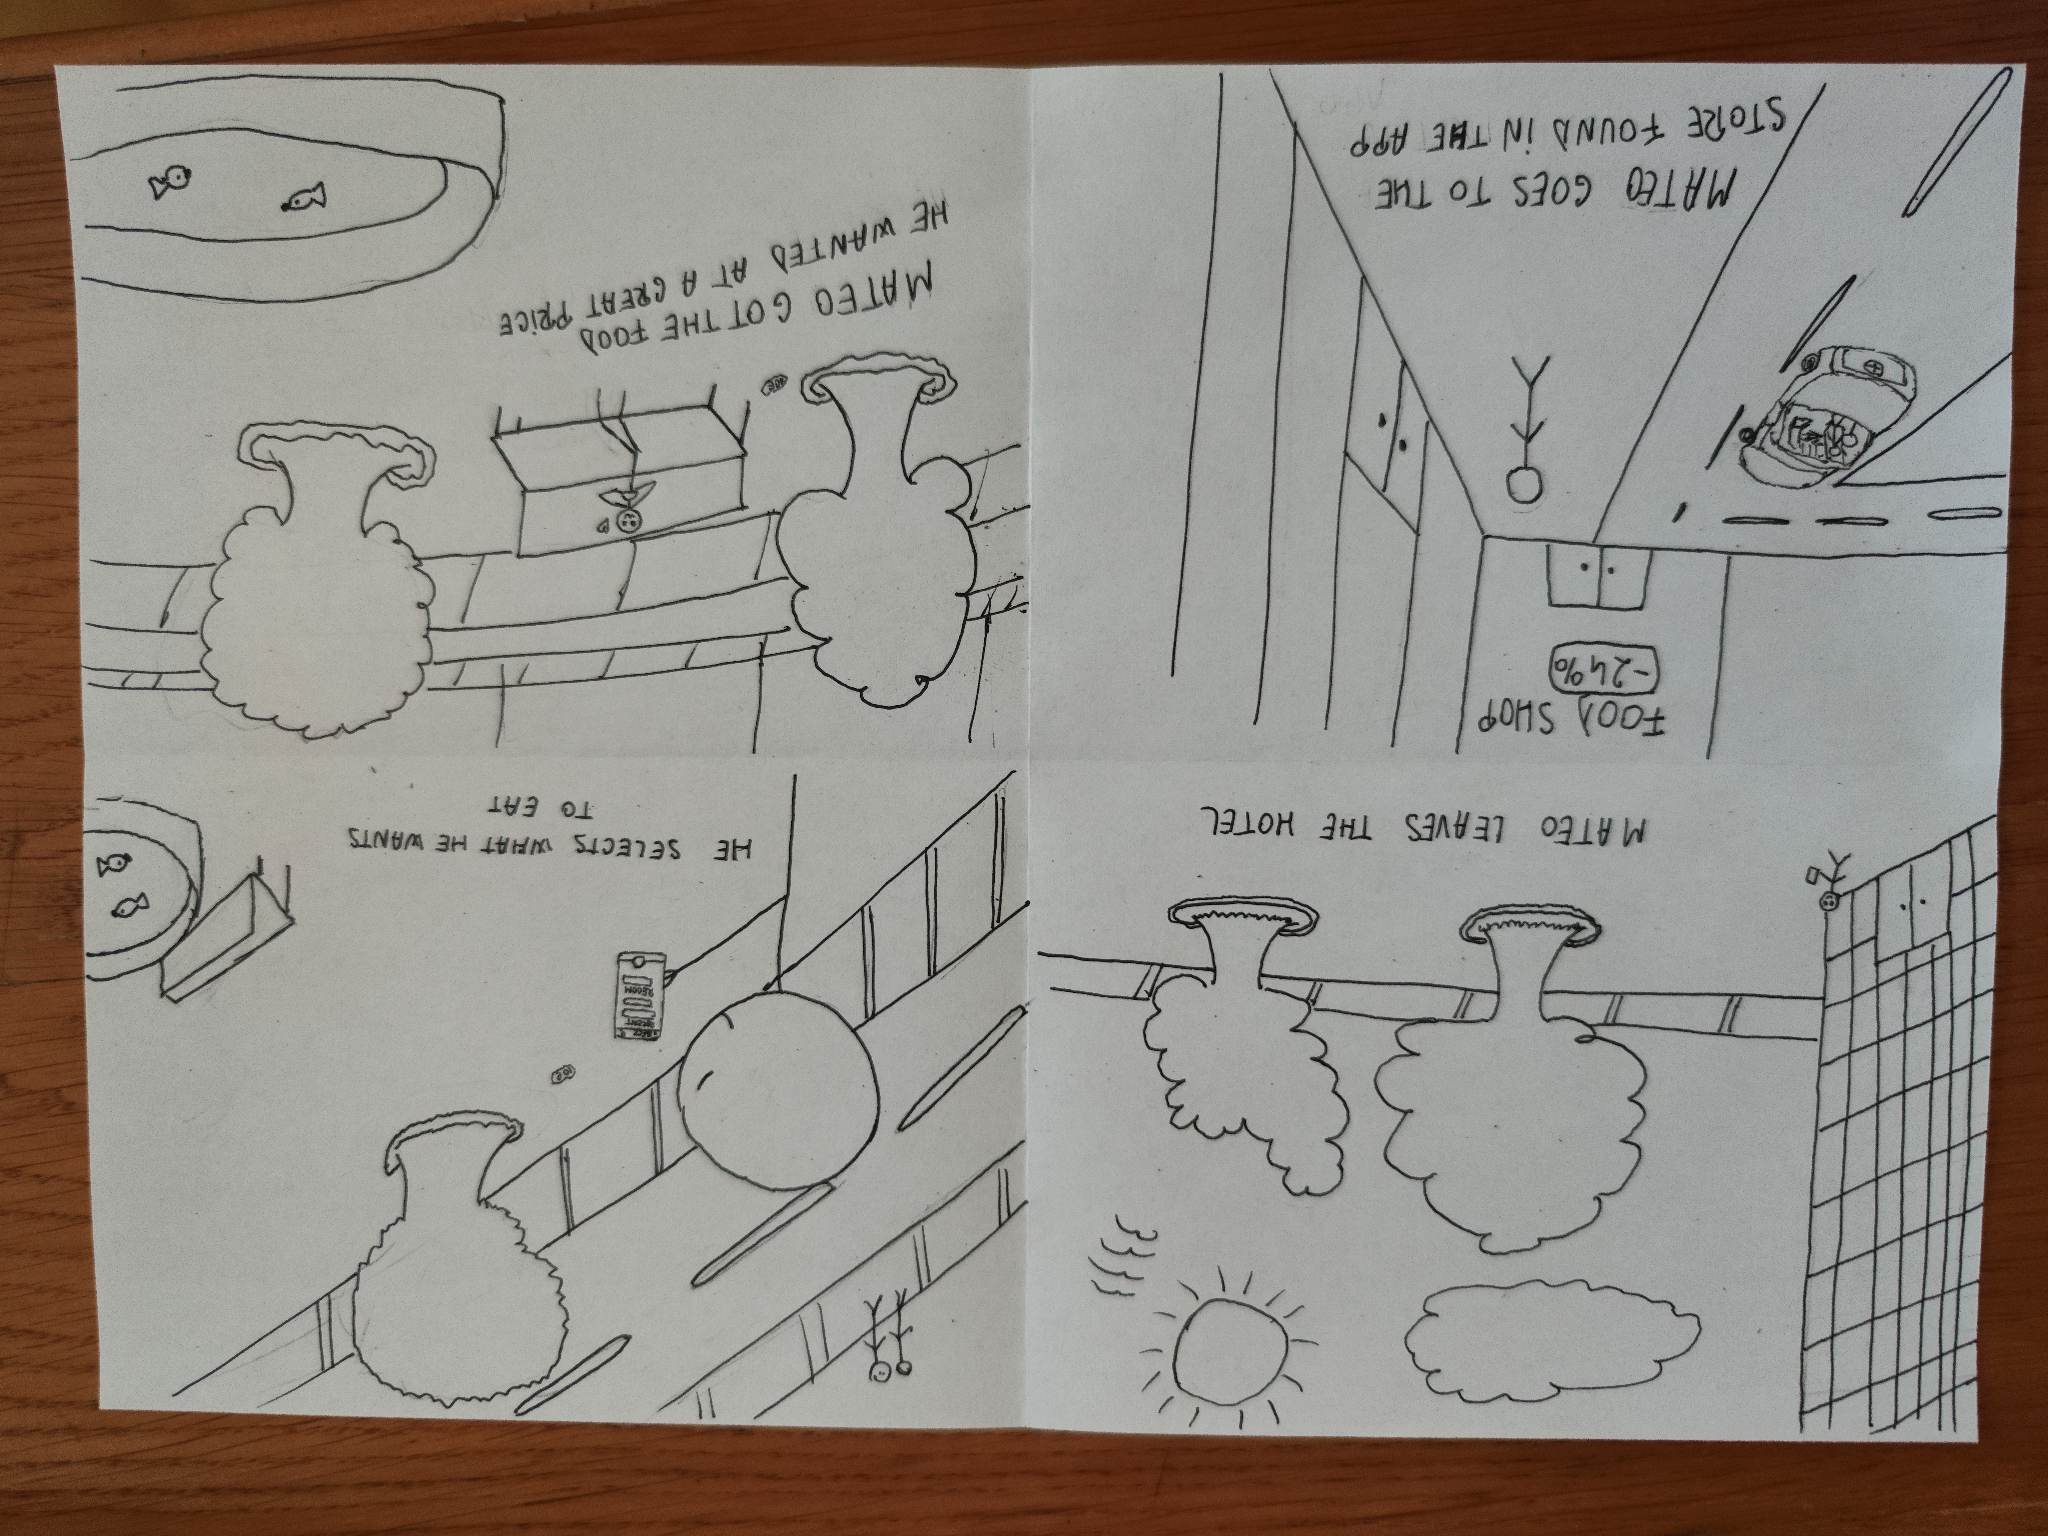 MATEO LEAVES THE HOTEL
RECENT
RECOM
HE SELECTS WHAT HE WANTS
TO EAT
FOOD SHOP
-24%
MATEO GOES TO THE
STORE FOUND IN THE APP
MATEO GOT THE FOOD
HE WANTED AT A GREAT PRICE